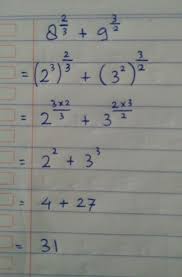 8^(2/3) + 9^(3/2)
= (2^3)^(2/3) + (3^2)^(3/2)
= 2^((3×2)/3) + 3^((2×3)/2)
= 2^2 + 3^3
= 4 + 27
= 31